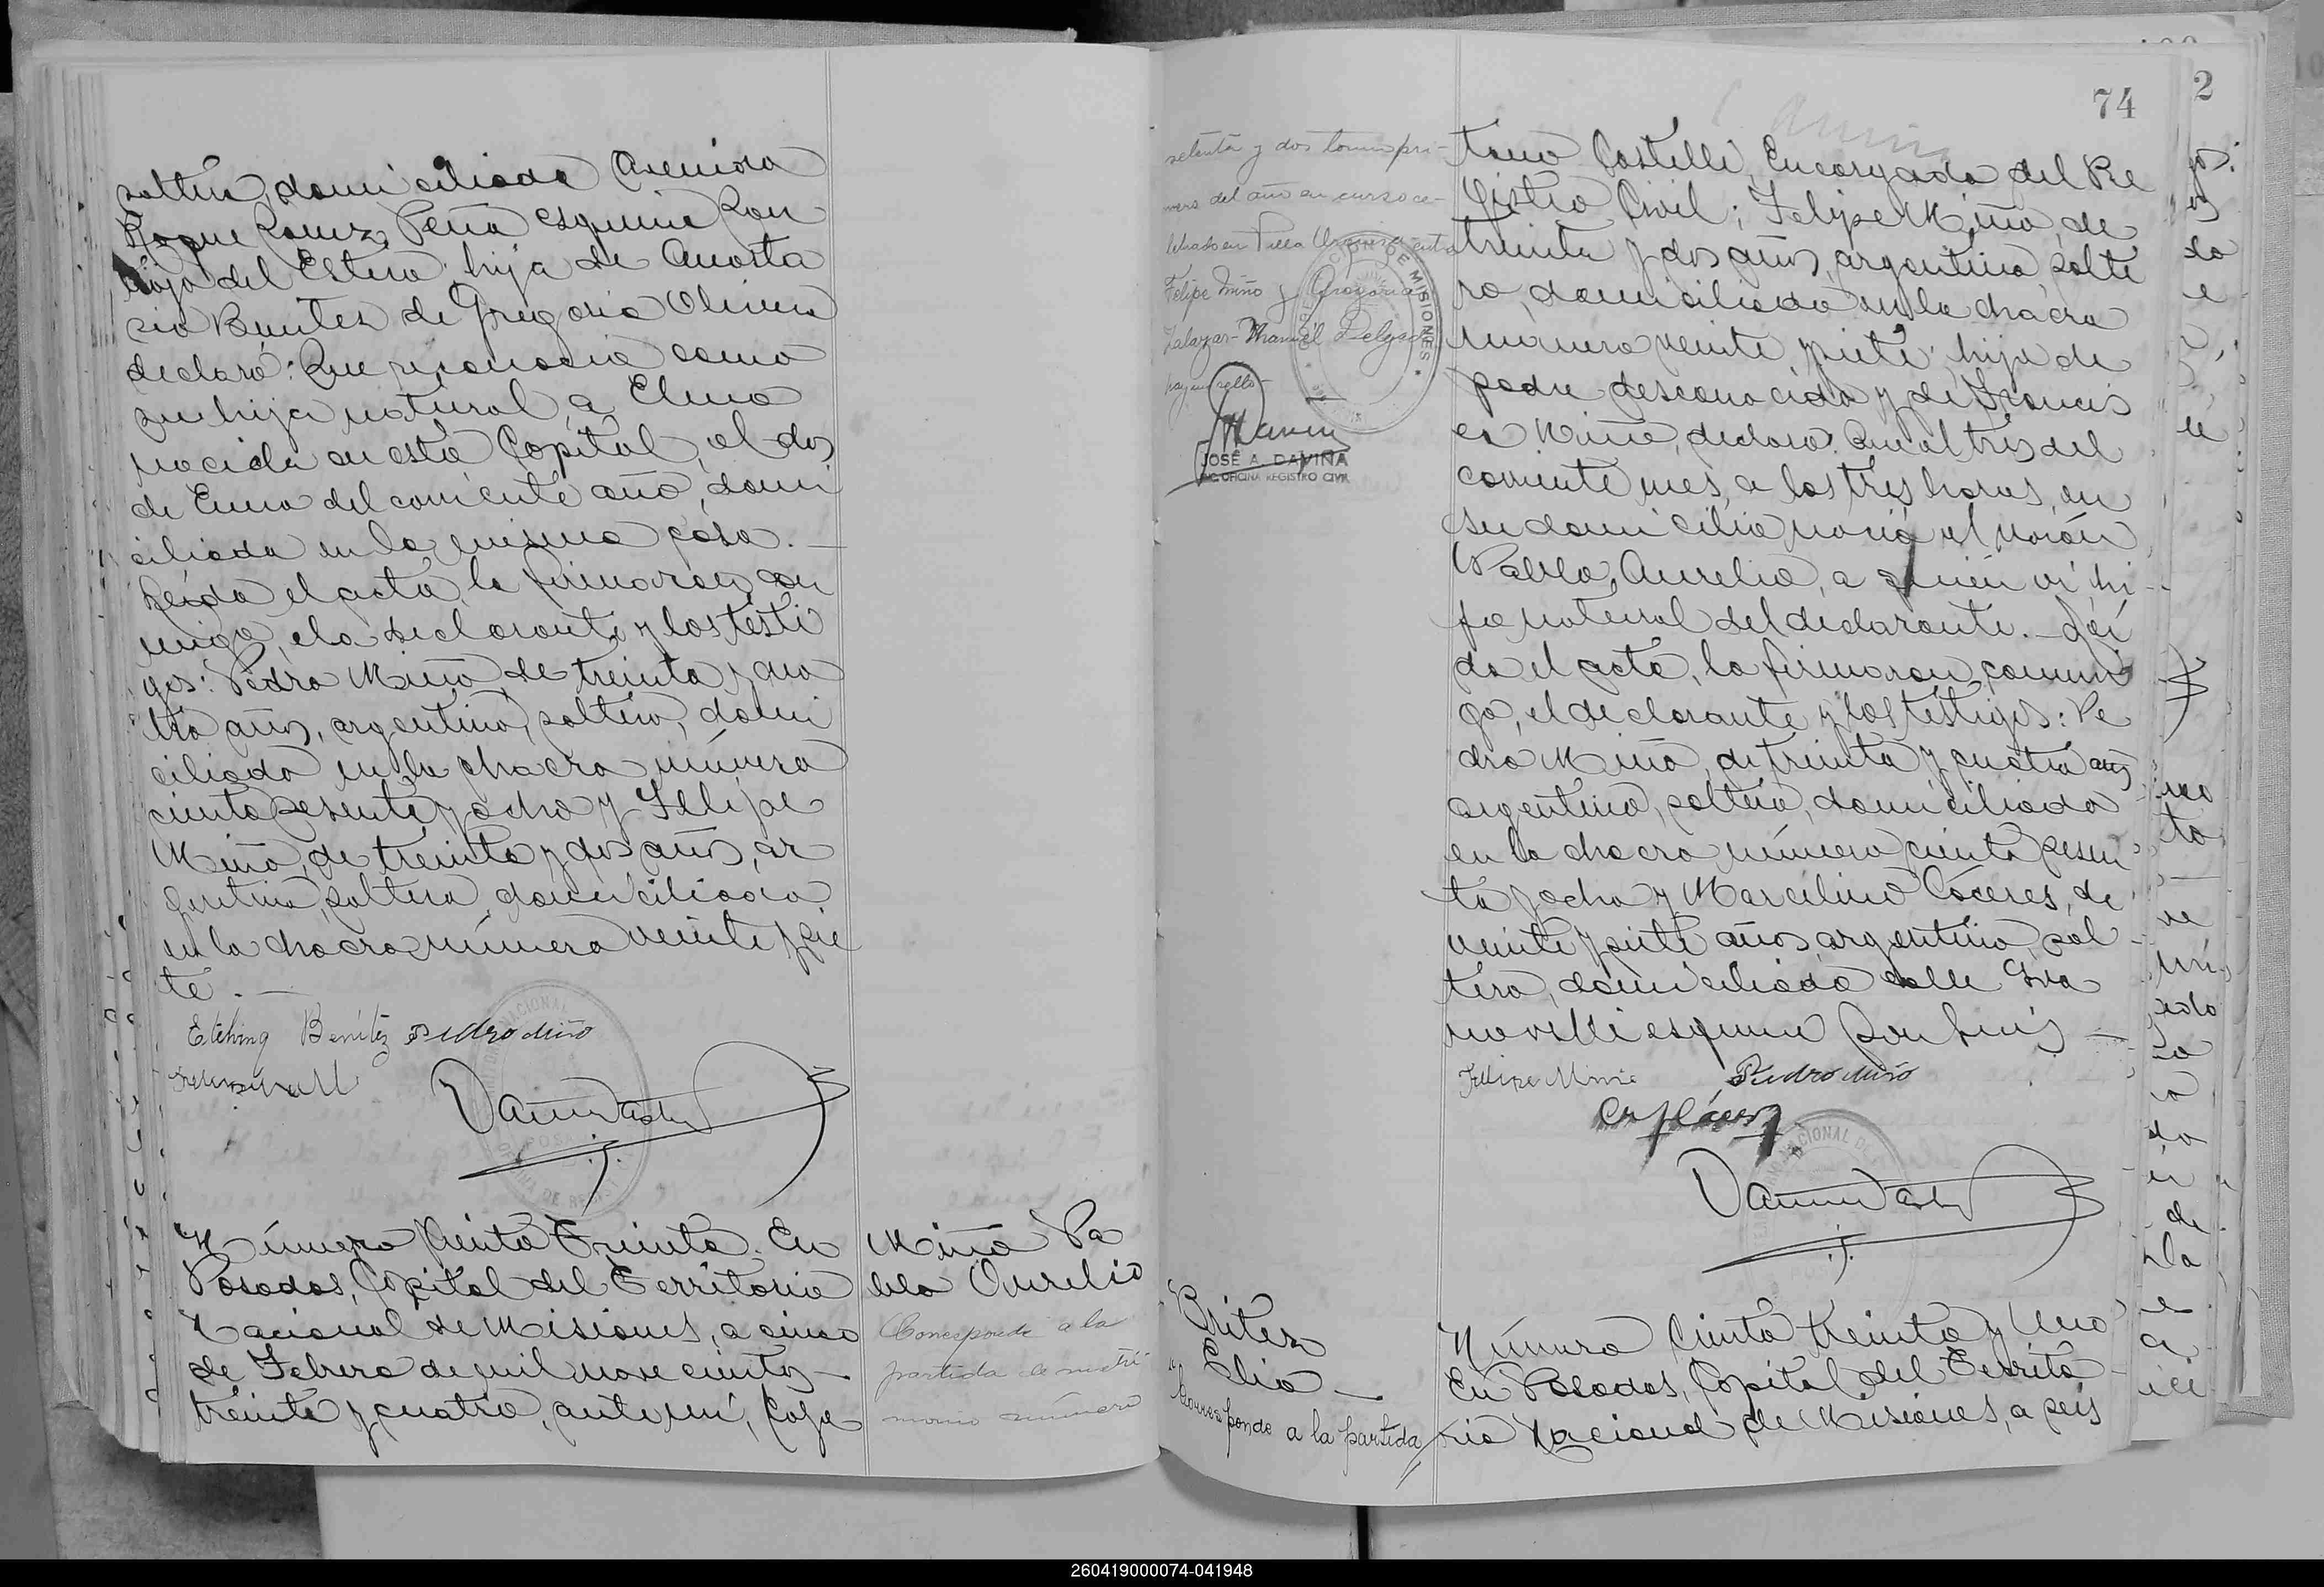 soltera, domiciliada Avenida
Roque Saenz Peña esquina San
tiago del Estero, hija de Anasta
cio Benitez de Gregoria Olivera
declaró: Que reconocia como
su hija natural a Elma
nacida en esta Capital, el dos
de Enero del corriente año, domi
ciliada en la misma casa.—
Leída el acta, la firmaron con
migo, ela declarante y los testi
gos: Pedro Miño de treinta y cua
tro años, argentino, soltero, domi
ciliado en la chacra número
ciento sesenta y ocho y Felipe
Miño, de treinta y dos años, ar
gentino, soltero, domiciliado
en la chacra número veinte y sie
te.—
Benítez Pedro Miño
Número Ciento Treinta. En
Posadas, Capital del Territorio
Nacional de Misiones, a cinco
de Febrero de mil novecientos—
treinta y cuatro, ante mí, Caye
Miño Pa
blo Aurelio
Corresponde a la
partida de matri-
monio número
74
setenta y dos tomo pri-
mero del año en curso ce-
lebrado en Villa Urquiza entre
Felipe Miño y Gregoria
Zalazar- Manuel Delgado
hay un sello-
JOSÉ A. DAVIÑA
ENC. OFICINA REGISTRO CIVIL
tano Castelli, Encargado del Re
gistro Civil; Felipe Miño, de
treinta y dos años, argentino, solte
ro, domiciliado en la chacra
número veinte y siete, hijo de
padre desconocido y de Francis
ca Miño, declaro: Que el tres del
corriente mes, a las tres horas, en
su domicilio nació el varón
Pablo, Aurelio, a quien vi, hi-
jo natural del declarante.—Leí
da el acta, la firmaron conmi
go, el declarante y los testigos: Pe
dro Miño, de treinta y cuatro años
argentino, soltero, domiciliado
en la chacra número ciento sesen
ta y ocho y Marcelino Cáceres, de
veinte y siete años, argentino, sol
tero, domiciliado calle Iva
nowski esquina San Luis—
Felipe Miño Pedro Miño
Britez
Elio—
Corresponde a la partida
Número Ciento treinta y Uno
En Posadas, Capital del Territo
rio Nacional de Misiones, a seis
2
260419000074-041948